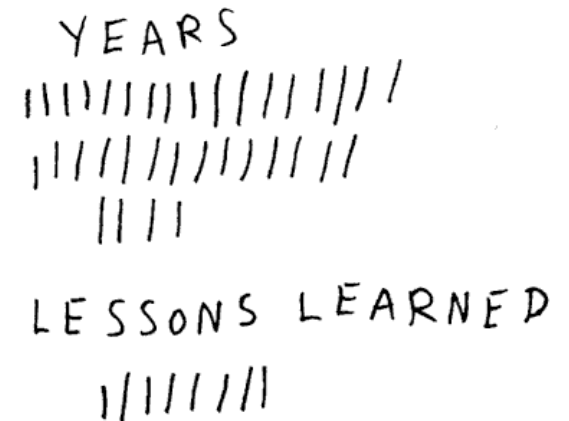 YEARS
||||||||||||||||||||
|||||||||||||||||
||||
LESSONS LEARNED
||||||||